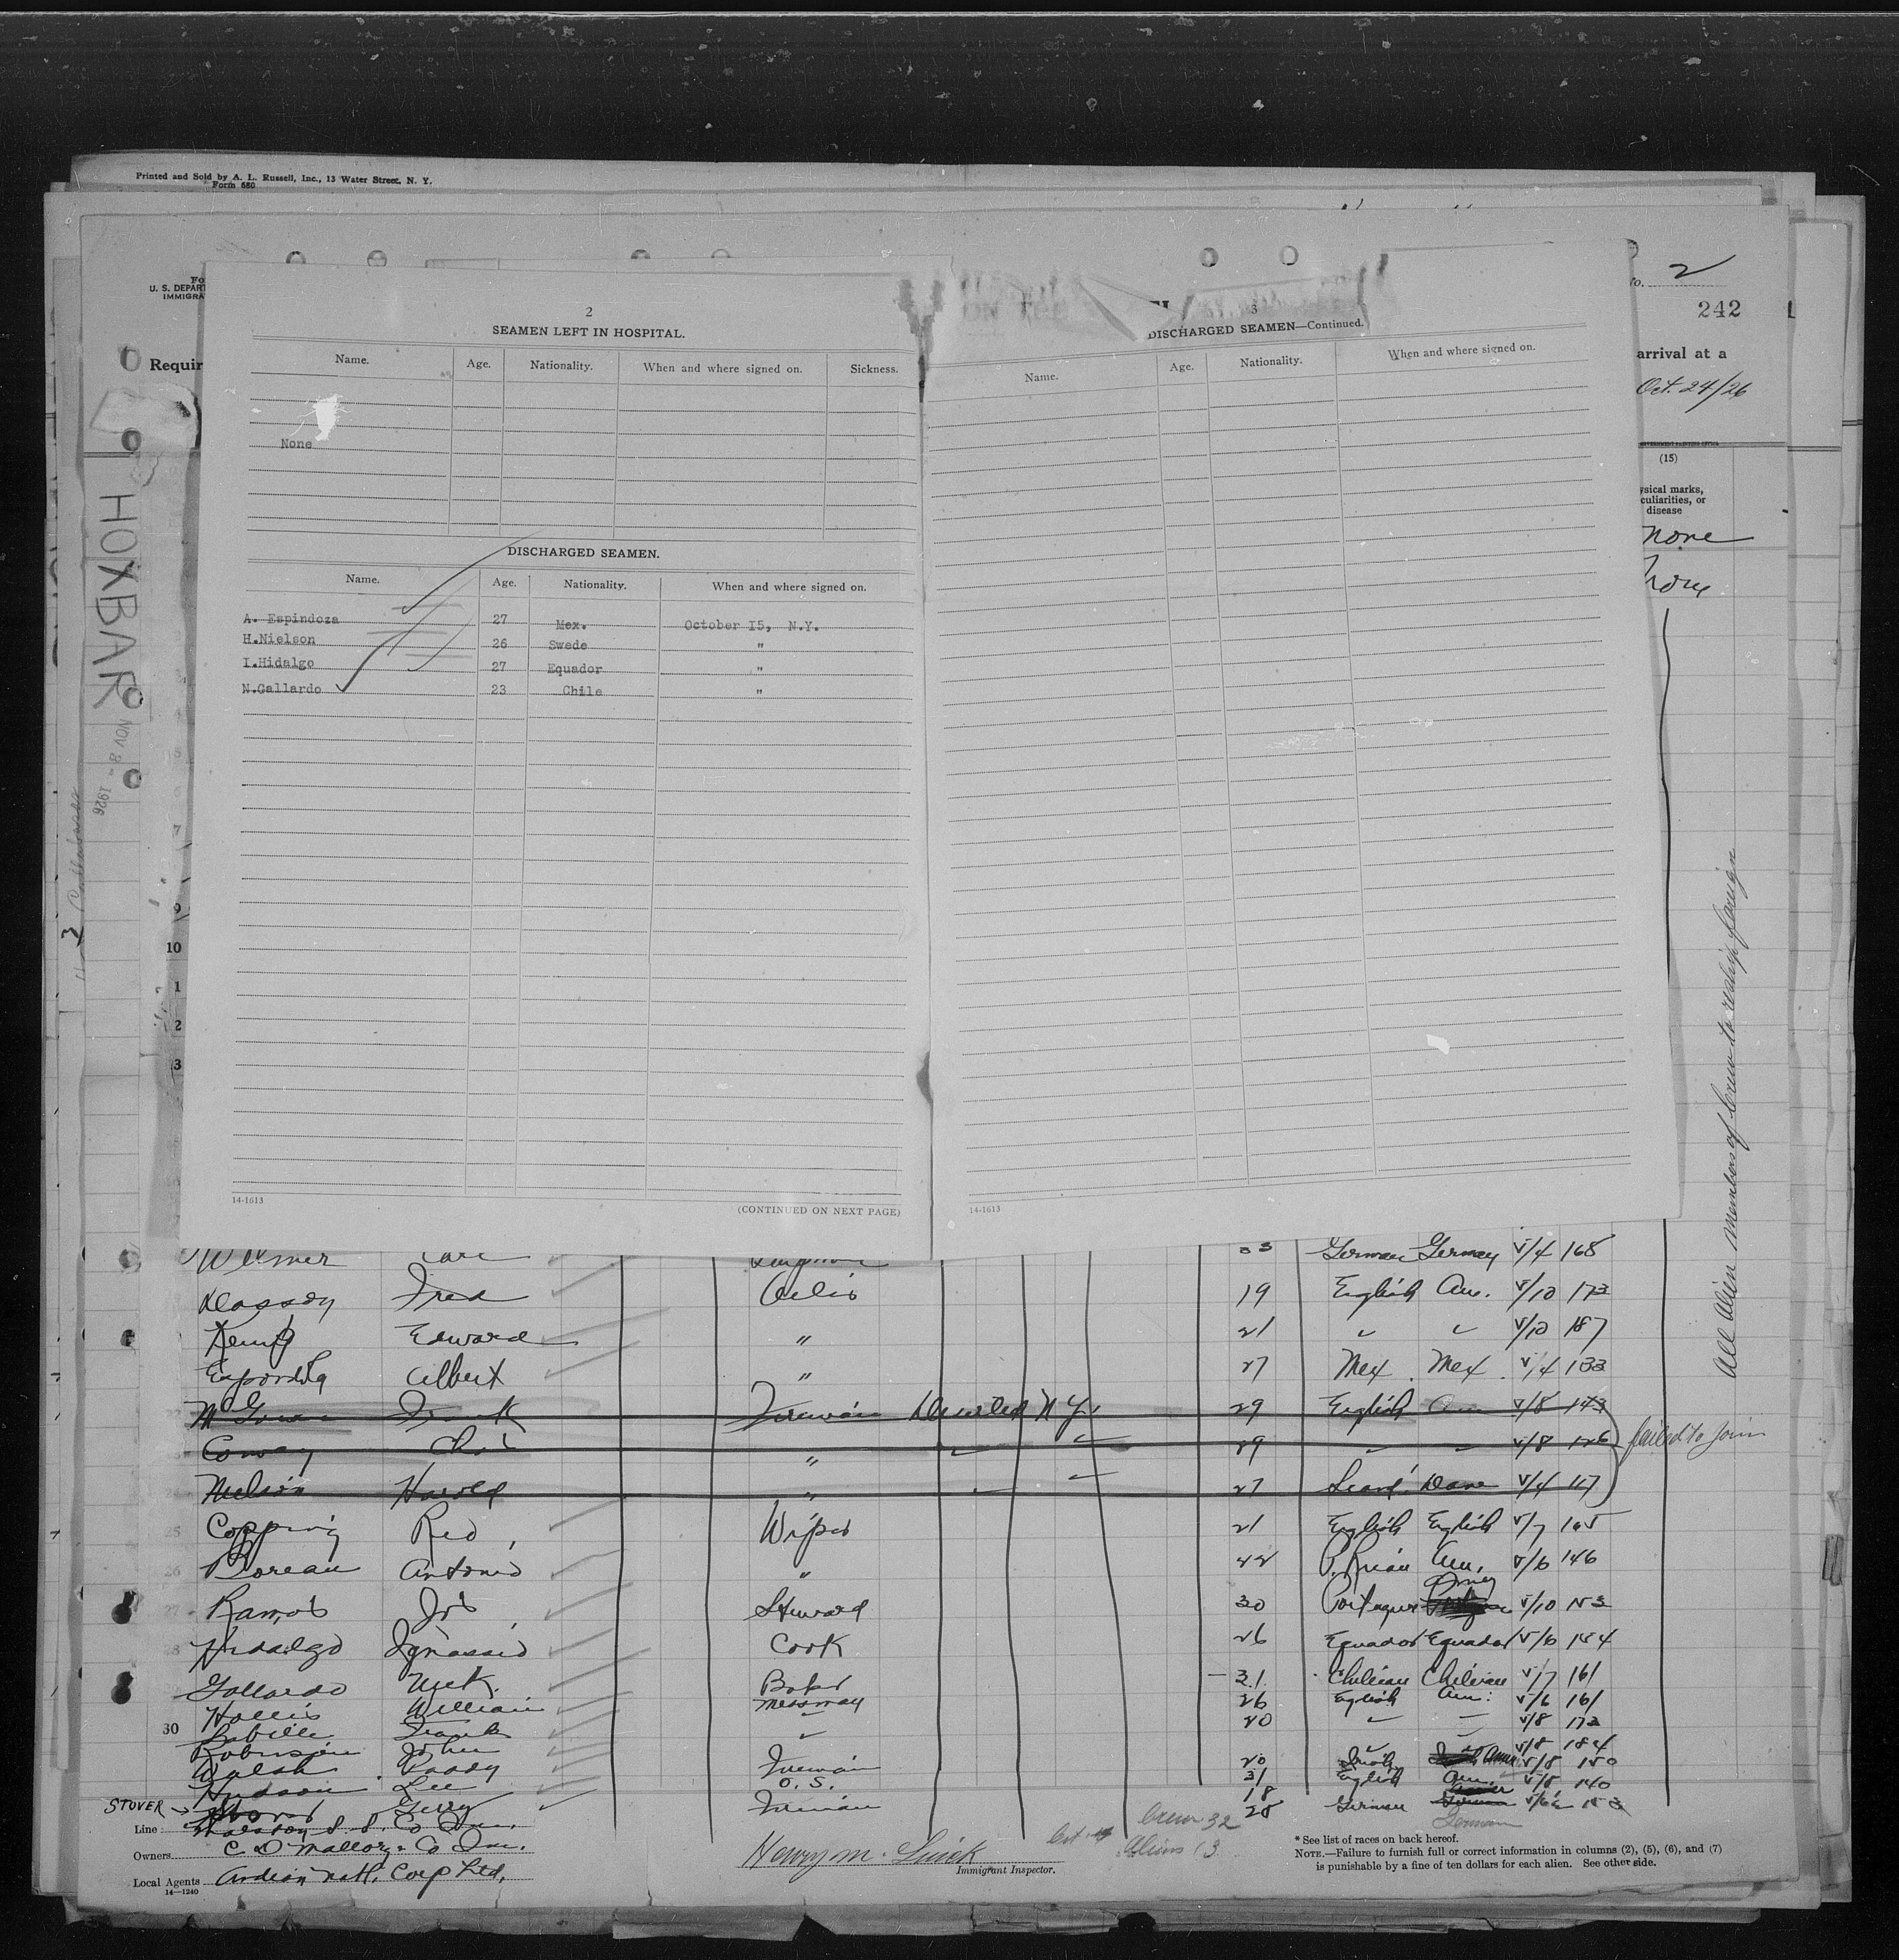 Printed and Sold by A. L. Russell, Inc., 13 Water Street, N. Y.
Form 680
U. S. DEPAR
IMMIGRA
2
242
Requir
arrival at a
Oct. 24/26
(15)
ysical marks,
culiarities, or
disease
none
none
HOXBAR
NOV 8 - 1926
2
SEAMEN LEFT IN HOSPITAL.
Name. Age. Nationality. When and where signed on. Sickness.
None
DISCHARGED SEAMEN.
Name. Age. Nationality. When and where signed on.
A. Espindoza 27 Mex. October I5, N.Y.
H.Nielson 26 Swede "
I.Hidalgo 27 Equador "
N.Gallardo 23 Chile "
14-1613
(CONTINUED ON NEXT PAGE)
3
DISCHARGED SEAMEN—Continued.
Name. Age. Nationality. When and where signed on.
14-1613
All Alien members of Crew to reship foreign
7
9
10
1
2
3
German Germany V/4 168
Fred Oiler 19 English Am. V/10 173
Kemp Edward " 21 V/10 187
Albert " 27 Mex. Mex. V/4 133
Frank Fireman Deserted N Y. 29 English Am V/8 143
Conway " 29 V/8 126
failed to join
Nelson Harold " 27 Scand. Dane V/4 117
25 Copping Red Wiper 21 English English V/7 165
26 Antonio " 42 Am. V/6 146
27 Ramos Steward 30 V/10 153
28 Hidalgo Cook 26 Equador Equador V/6 154
Gallardo Nick. Baker 31 Chilean Chilean V/7 161
Hollis William Messman 26 English Am. V/6 161
30 Frank 20 V/8 172
Robinson John V/8 184
Walsh Paddy Fireman 20 Irish V/8 150
Hudson Lee O. S. 31 English Am. V/8 140
18
STOVER → Gerry Fireman 28 German
German
Line S. S. Co Inc.
Owners C D Mallory & Co Inc.
Local Agents Andian Natl. Corp Ltd.
14—1240
Henry M.
Immigrant Inspector.
Crew 32
Aliens 13
* See list of races on back hereof.
NOTE.—Failure to furnish full or correct information in columns (2), (5), (6), and (7)
is punishable by a fine of ten dollars for each alien. See other side.